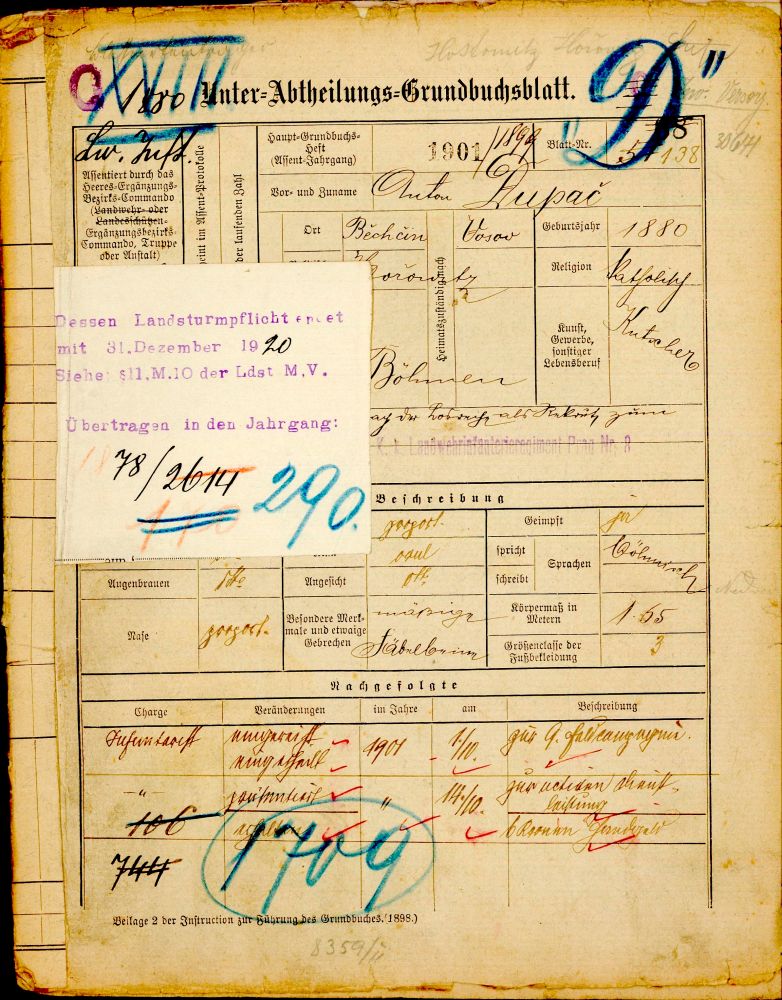 XVIII
1880 Unter-Abtheilungs-Grundbuchsblatt.
"D"
Lw. Inft.
Assentiert durch das
Heeres-Ergänzungs-
Bezirks-Commando
(Landwehr- oder
Landesschützen-
Ergänzungsbezirks-
Commando, Truppe
oder Anstalt)
eint im Assent-Protokolle
der laufenden Zahl
Haupt-Grundbuchs-
Heft
(Assent-Jahrgang)
1901/1899
Blatt-Nr.
138
3064
Vor- und Zuname
Anton Dupač
Ort
Běchčin
Vosov
Geburtsjahr
1880
heimatszuständig nach
Religion
Katholisch
Böhmen
Kunst,
Gewerbe,
sonstiger
Lebensberuf
Kutscher
als Rekrut zum
K. k. Landwehrinfanterieregiment Prag Nr. 8
Dessen Landsturmpflicht endet
mit 31.Dezember 1920
Siehe: §11.M.10 der Ldst M.V.
Übertragen in den Jahrgang:
78/2614 290.
Beschreibung
proport.
Geimpft
ja
oval
spricht
schreibt
Sprachen
böhmisch
Augenbrauen
dto
Angesicht
dto
Nase
proport.
Besondere Merk-
male und etwaige
Gebrechen
mässige
Säbelbeine
Körpermaß in
Metern
1·65
Größenclasse der
Fußbekleidung
3
Nachgefolgte
Charge
Veränderungen
im Jahre
am
Beschreibung
Infanterist
eingereiht
eingetheilt
1901
1/10.
zur 9. Feldcompagnie.
-"-
präsentiert
"
14/10.
zur activen Dienst-
leistung
106
erhalten
6 Kronen Handgeld
744
1709
Beilage 2 der Instruction zur Führung des Grundbuches. (1898.)
8359/II